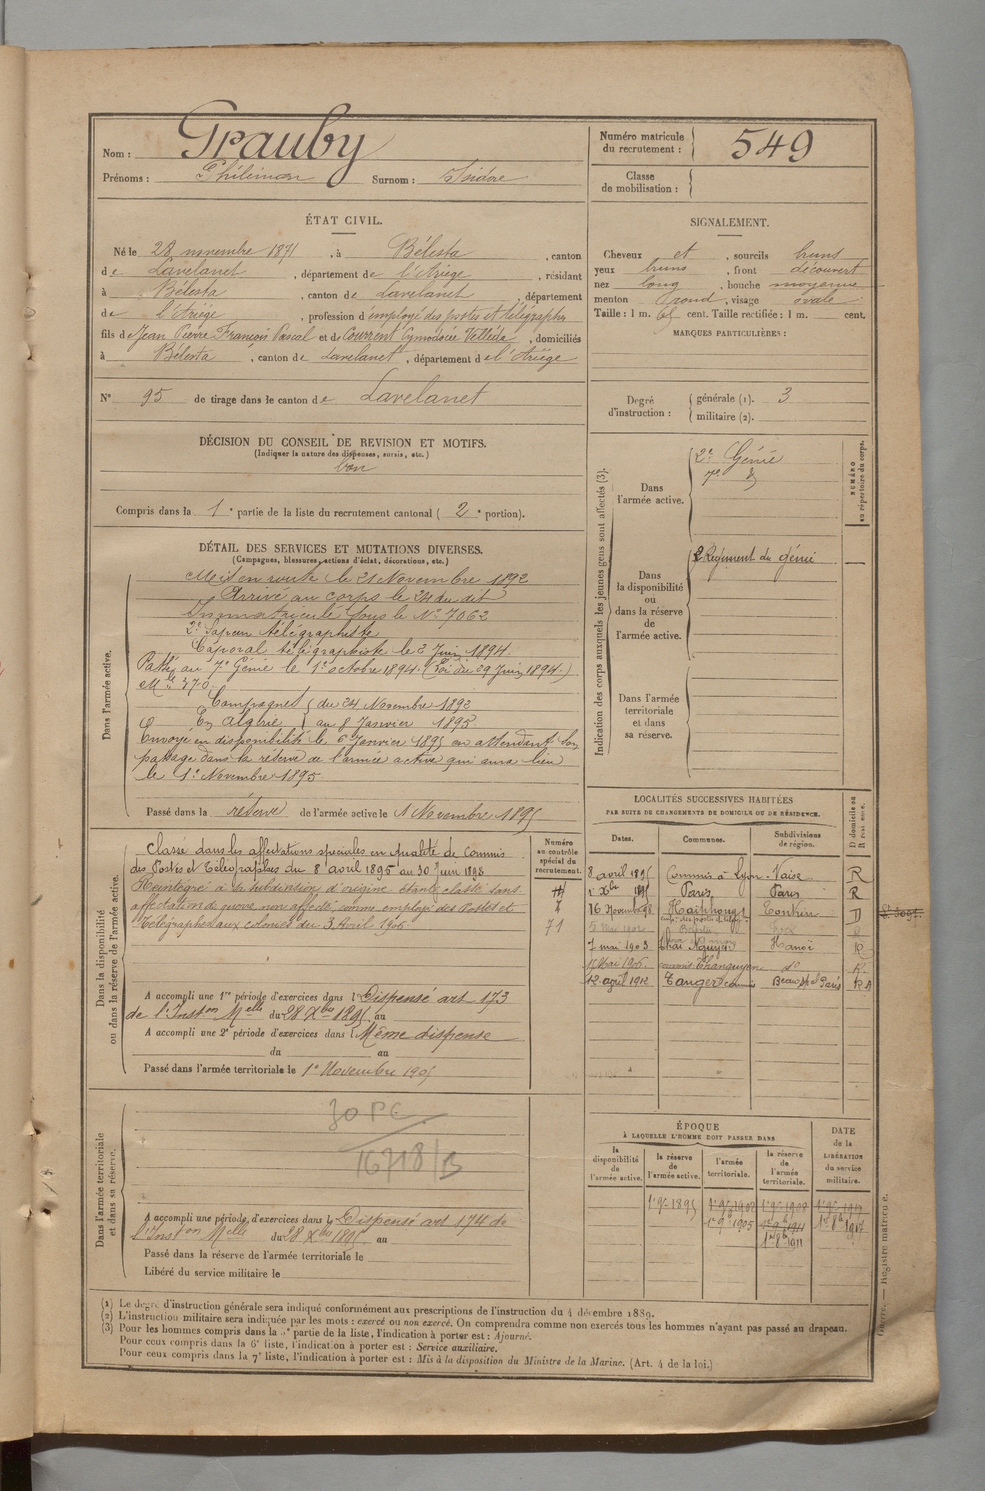 Nom : Grauby
Prénoms : Philémon Surnom : Isidore
Numéro matricule du recrutement : 549
Classe de mobilisation :
ÉTAT CIVIL.
Né le 28 novembre 1871, à Bélesta, canton
de Lavelanet, département de l'Ariège, résidant
à Bélesta, canton de Lavelanet, département
de l'Ariège, profession d employé des postes et télégraphes
fils de Jean Pierre François Pascal et de Courrent Cymodocée Velléda, domiciliés
à Bélesta, canton de Lavelanet, département de l'Ariège
N° 95 de tirage dans le canton de Lavelanet
SIGNALEMENT.
Cheveux et, sourcils bruns
yeux bruns, front découvert
nez long, bouche moyenne
menton rond, visage ovale
Taille : 1 m. 65 cent. Taille rectifiée : 1 m. cent.
MARQUES PARTICULIÈRES :
Degré d'instruction : générale (1). 3
militaire (2).
DÉCISION DU CONSEIL DE REVISION ET MOTIFS.
(Indiquer la nature des dispenses, sursis, etc.)
bon
Compris dans la 1e partie de la liste du recrutement cantonal (2e portion).
DÉTAIL DES SERVICES ET MUTATIONS DIVERSES.
(Campagnes, blessures, actions d'éclat, décorations, etc.)
Dans l'armée active.
Mis en route le 21 Novembre 1892
Arrivé au corps le 24 du dit
Immatriculé sous le N° 7062
2e Sapeur télégraphiste
Caporal télégraphiste le 2 Juin 1894.
Passé au 7e Génie le 1er octobre 1894. (Loi du 29 Juin 1894.)
Mle 370
Campagnes du 24 Novembre 1892
En Algérie au 8 Janvier 1895
Envoyé en disponibilité le 6 Janvier 1895 en attendant son
passage dans la réserve de l'armée active qui aura lieu
le 1er Novembre 1895.
Passé dans la réserve de l'armée active le 1 Novembre 1895
Indication des corps auxquels les jeunes gens sont affectés (3).
NUMÉRO au répertoire du corps.
Dans l'armée active.
2e Génie
7e d°
Dans la disponibilité ou dans la réserve de l'armée active.
2 Régiment du génie
Dans l'armée territoriale et dans sa réserve.
Dans la disponibilité ou dans la réserve de l'armée active.
Numéro au contrôle spécial du recrutement.
71
Classé dans les affectations spéciales en qualité de Commis
des Postes et Télégraphes du 8 avril 1895 au 30 Juin 1898
Réintégré à sa subdivision d'origine étant classé sans
affectation comme non affecté comme employé des Postes et
Télégraphes aux colonies du 3 Avril 1906.
A accompli une 1re période d'exercices dans l Dispensé art 173
de l'Inston Melle du 28 Xbre 1895 au
A accompli une 2e période d'exercices dans l Même dispense
du au
Passé dans l'armée territoriale le 1er Novembre 1905
LOCALITÉS SUCCESSIVES HABITÉES
PAR SUITE DE CHANGEMENTS DE DOMICILE OU DE RÉSIDENCE.
D domicile ou R résidence.
Dates. Communes. Subdivisions de région.
8 avril 1895 Commis à Lyon-Vaise R
1er Xbre 1895 Paris Paris R
16 Novembre 98 Haïphong Tonkin D
5 Mai 1902 Bélesta Foix R
7 mai 1903 Thaï Nguyen Hanoï R
11 Mai 1906 commis Thanguyene d° R
12 avril 1912 Tanger commis Beaux Pt Paris R A
Dans l'armée territoriale et dans sa réserve.
30 PC
16718/B
A accompli une période d'exercices dans l Dispensé art 174 de
l'Inston Melle du 28 Xbre 1895 au
Passé dans la réserve de l'armée territoriale le
Libéré du service militaire le
ÉPOQUE
À LAQUELLE L'HOMME DOIT PASSER DANS
DATE de la LIBÉRATION du service militaire.
la disponibilité de l'armée active. la réserve de l'armée active. l'armée territoriale. la réserve de l'armée territoriale.
1er 9bre 1895 1er 9bre 1902 1er 9bre 1908 1er 9bre 1917
1er 9bre 1905 1er 9bre 1911 1er 8bre 1917
1er 8bre 1911
(1) Le degré d'instruction générale sera indiqué conformément aux prescriptions de l'instruction du 4 décembre 1889.
(2) L'instruction militaire sera indiquée par les mots : exercé ou non exercé. On comprendra comme non exercés tous les hommes n'ayant pas passé au drapeau.
(3) Pour les hommes compris dans la 5e partie de la liste, l'indication à porter est : Ajourné.
Pour ceux compris dans la 6e liste, l'indication à porter est : Service auxiliaire.
Pour ceux compris dans la 7e liste, l'indication à porter est : Mis à la disposition du Ministre de la Marine. (Art. 4 de la loi.)
Guerre. — Registre matricule.